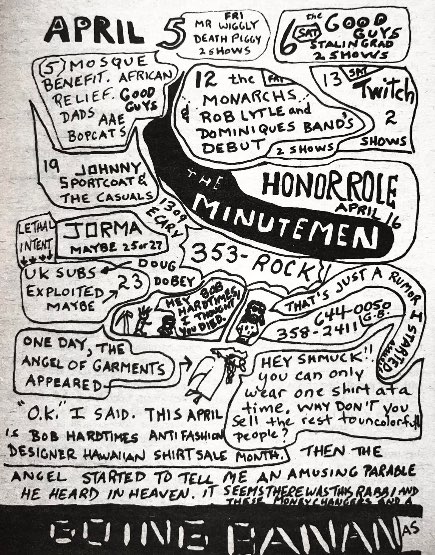 APRIL
5 FRI
MR WIGGLY
DEATH PIGGY
2 SHOWS
6 SAT the GOOD
GUYS
STALINGRAD
2 SHOWS
(5) MOSQUE
BENEFIT. AFRICAN
RELIEF. GOOD
DADS GUYS
AAE
BOPCATS
12 the FRI
MONARCHS
& ROB LYTLE and
DOMINIQUES BAND'S
DEBUT
2 SHOWS
13 SAT
Twitch
2
SHOWS
19 JOHNNY
SPORTCOAT &
THE CASUALS
THE
MINUTEMEN
HONOR ROLE
APRIL 16
1309
E CARY
353-ROCK
LETHAL
INTENT
JORMA
MAYBE 25 or 27
UK SUBS
EXPLOITED
MAYBE
23
DOUG
DOBEY
HEY BOB
HARDTIMES,
I THOUGHT
YOU DIED.
THAT'S JUST A RUMOR I STARTED
644-0050
358-2411 G.B.
ONE DAY, THE
ANGEL OF GARMENTS
APPEARED
HEY SHMUCK!!
you can only
wear one shirt at a
time. WHY DON'T you
Sell the rest to uncolorfull
people?
"O.K." I SAID. THIS APRIL
IS BOB HARDTIMES ANTI FASHION
DESIGNER HAWAIIAN SHIRT SALE MONTH. THEN THE
ANGEL STARTED TO TELL ME AN AMUSING PARABLE
HE HEARD IN HEAVEN. IT SEEMS THERE WAS THIS RABBI AND
THESE MONEY CHANGERS AND A
GOING BANANAS